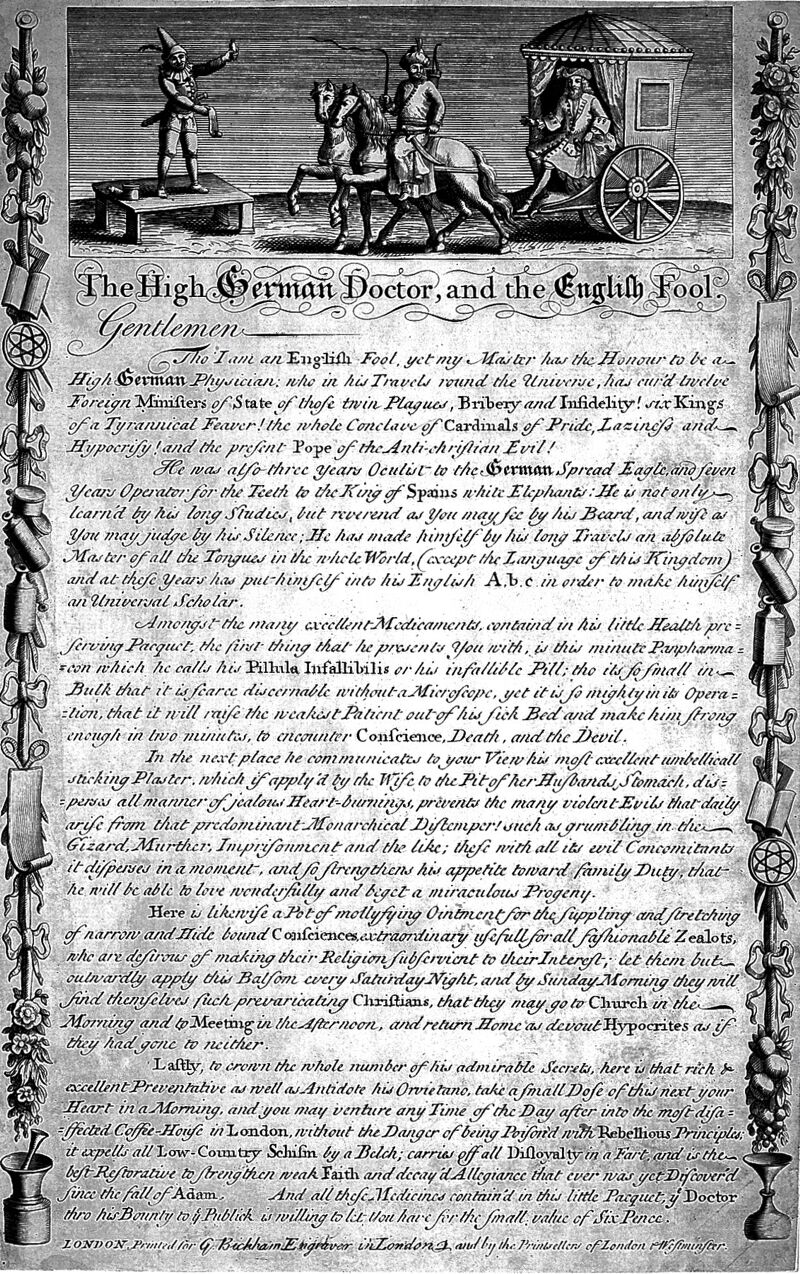 The High German Doctor, and the English Fool.
Gentlemen
Tho I am an English Fool, yet my Master has the Honour to be a
High German Physician; who in his Travels round the Universe, has cur'd twelve
Foreign Ministers of State of those twin Plagues, Bribery and Infidelity! six Kings
of a Tyrannical Feaver! the whole Conclave of Cardinals of Pride, Laziness and
Hypocrisy! and the present Pope of the Anti-christian Evil!
He was also three Years Oculist to the German Spread Eagle, and seven
Years Operator for the Teeth to the King of Spains white Elephants: He is not only
learn'd by his long Studies, but reverend as You may see by his Beard, and wise as
You may judge by his Silence; He has made himself by his long Travels an absolute
Master of all the Tongues in the whole World, (except the Language of this Kingdom)
and at these Years has put himself into his English A, b, c in order to make himself
an Universal Scholar.
Amongst the many excellent Medicaments, containd in his little Health pre=
serving Pacquet, the first thing that he presents You with, is this minute Panpharma=
=con which he calls his Pillula Infallibilis or his infallible Pill; tho its so small in
Bulk that it is scarce discernable without a Microscope, yet it is so mighty in its Opera=
=tion, that it will raise the weakest Patient out of his sick Bed and make him strong
enough in two minutes, to encounter Conscience, Death, and the Devil.
In the next place he communicates to your View his most excellent umbellicall
sticking Plaster, which if apply'd by the Wife to the Pit of her Husbands Stomach, dis=
=perses all manner of jealous Heart-burnings, prevents the many violent Evils that daily
arise from that predominant Monarchical Distemper! such as grumbling in the
Gizard, Murther, Imprisonment and the like; these with all its evil Concomitants
it disperses in a moment, and so strengthens his appetite toward family Duty, that
he will be able to love wonderfully and beget a miraculous Progeny.
Here is likewise a Pot of mollyfying Ointment for the suppling and stretching
of narrow and Hide bound Consciences, extraordinary usefull for all fashionable Zealots,
who are desirous of making their Religion subservient to their Interest; let them but
outwardly apply this Balsom every Saturday Night, and by Sunday Morning they will
find themselves such prevaricating Christians, that they may go to Church in the
Morning and to Meeting in the Afternoon, and return Home as devout Hypocrites as if
they had gone to neither.
Lastly, to crown the whole number of his admirable Secrets, here is that rich &
excellent Preventative as well as Antidote his Orvietano, take a small Dose of this next your
Heart in a Morning, and you may venture any Time of the Day after into the most disa=
=ffected Coffee-House in London, without the Danger of being Poison'd with Rebellious Principles,
it expells all Low-Country Schism by a Belch; carries off all Disloyalty in a Fart, and is the
best Restorative to strengthen weak Faith and decay'd Allegiance that ever was yet Discover'd
since the fall of Adam. And all these Medicines contain'd in this little Pacquet, ye Doctor
thro his Bounty to ye Publick is willing to let You have for the small value of Six Pence.
LONDON, Printed for G. Bickham Engraver in London, and by the Printsellers of London & Westminster.